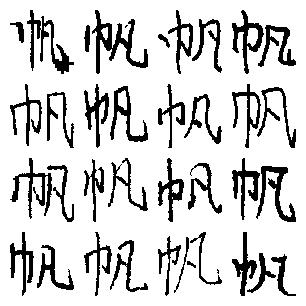 帆帆帆帆
帆帆帆帆
帆帆帆帆
帆帆帆帆